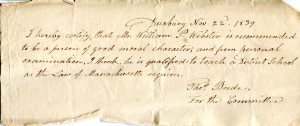 Duxbury Nov. 22d. 1839
I hereby certify, that Mr. William P. Webster is recommended
to be a person of good moral character, and from personal
examination, I think, he is qualified to teach a District School
as the Law of Massachusetts requires.
For the Committee